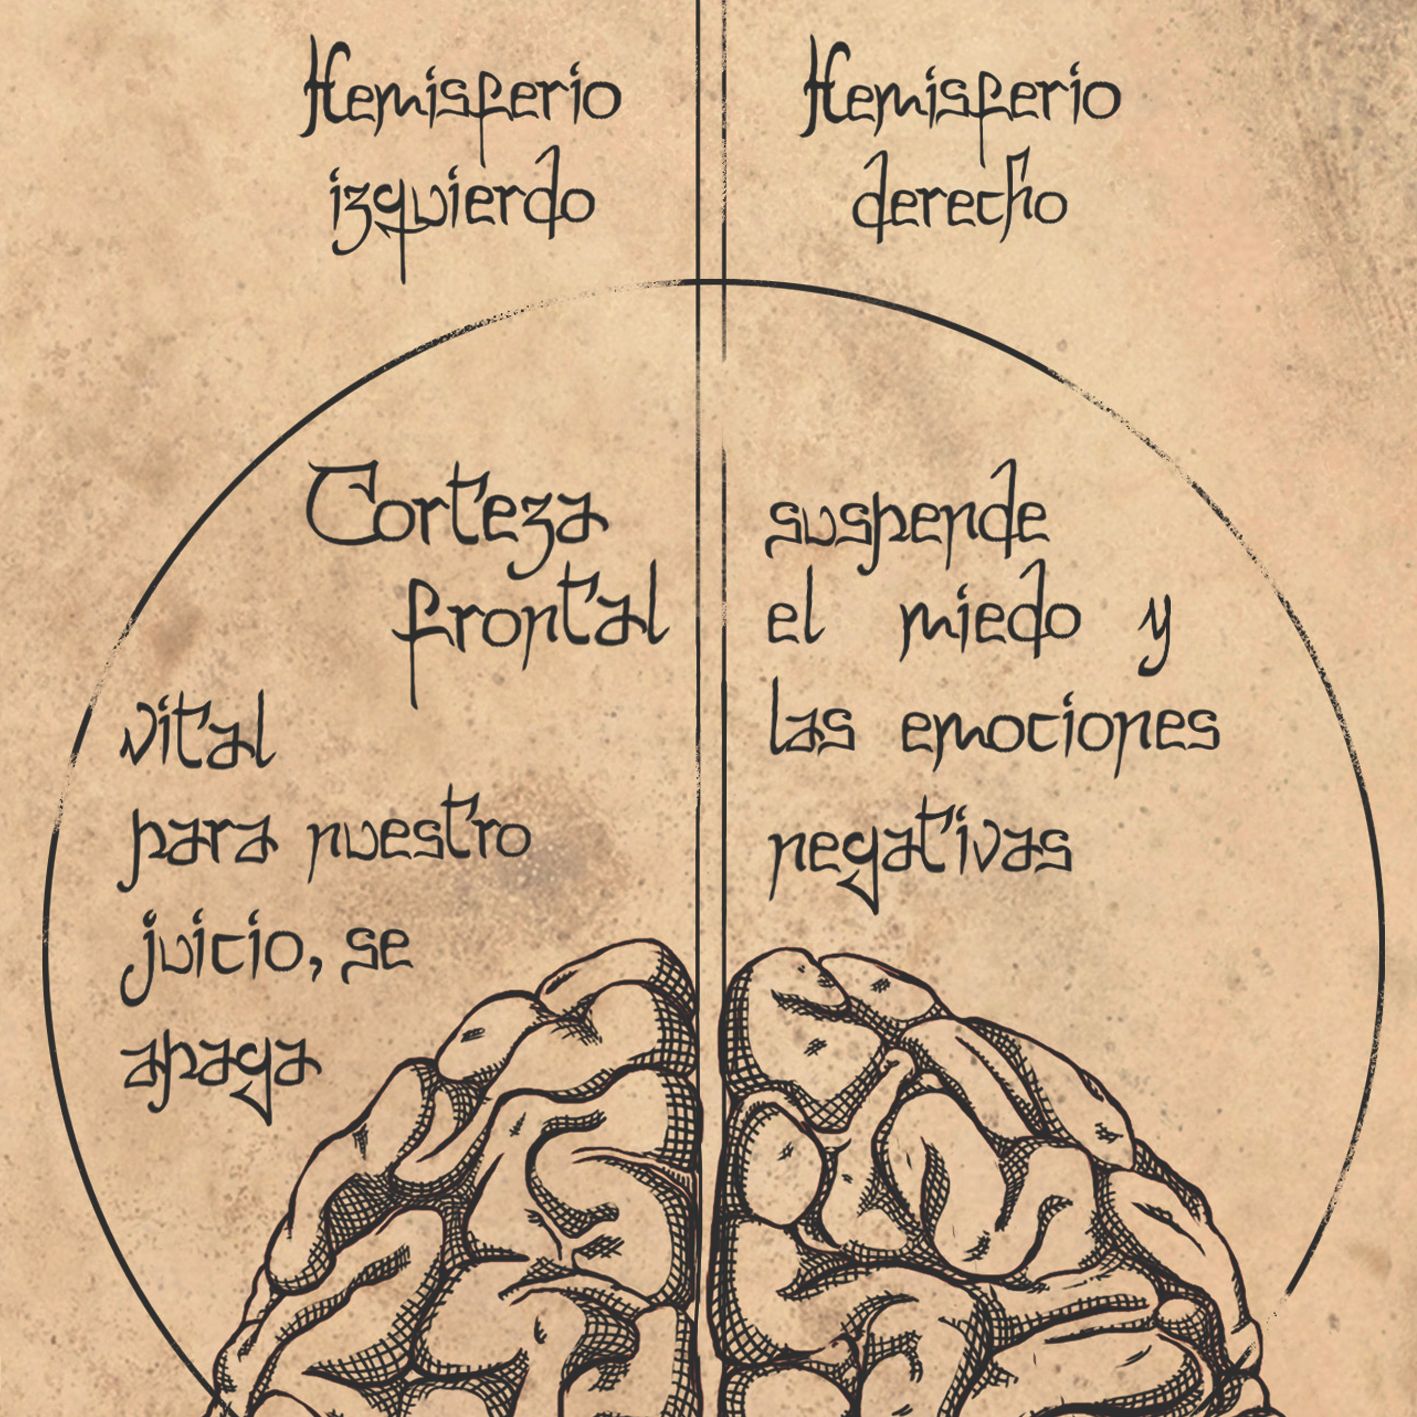 Hemisferio
izquierdo
Hemisferio
derecho
Corteza
frontal
vital
para nuestro
juicio, se
apaga
suspende
el miedo y
las emociones
negativas